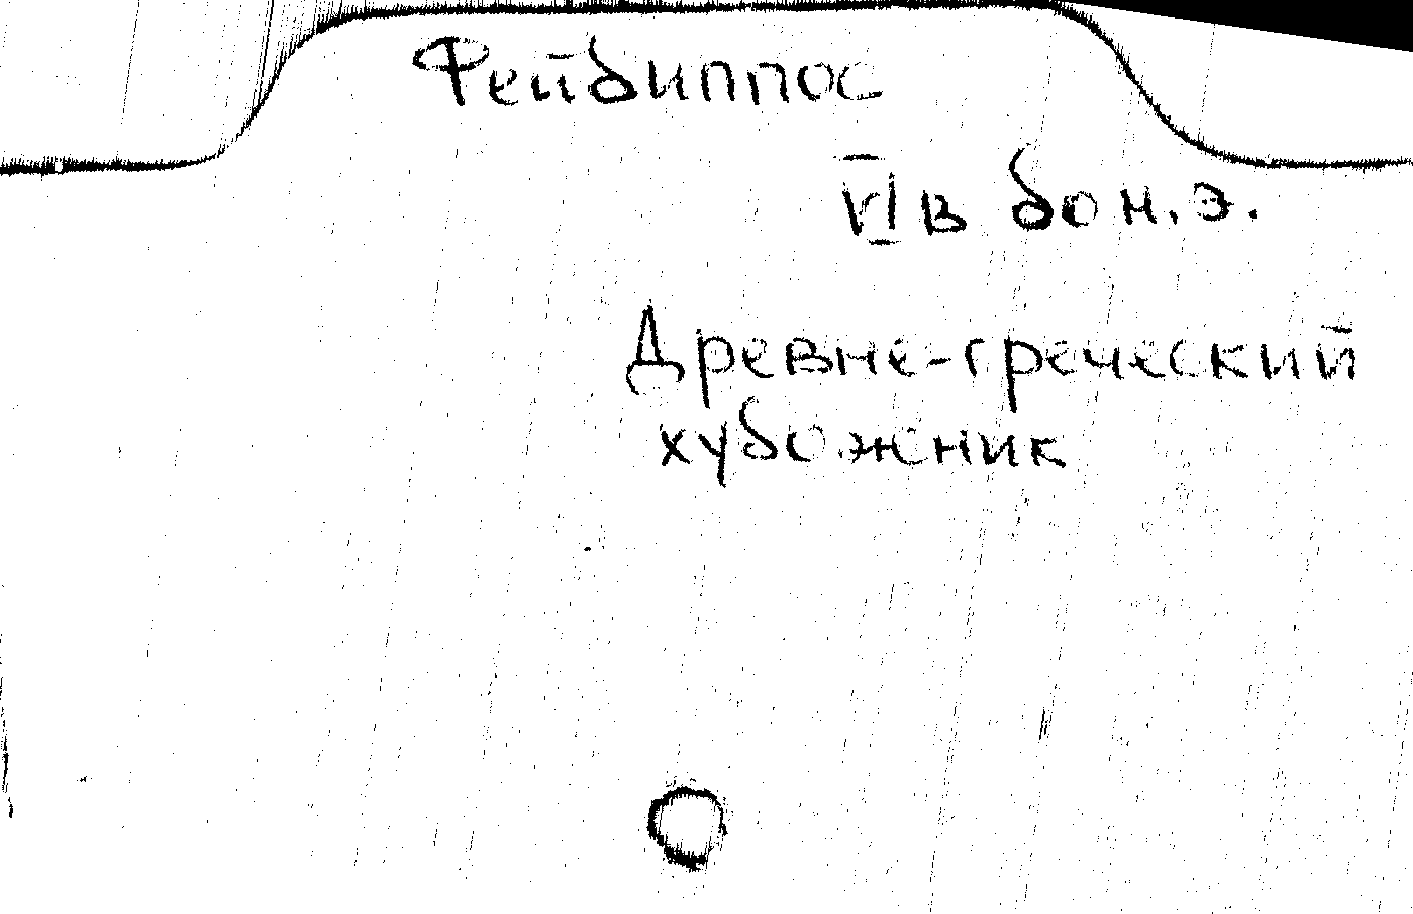 Фейдиппос
VI в до н.э.
Древне-греческий
художник